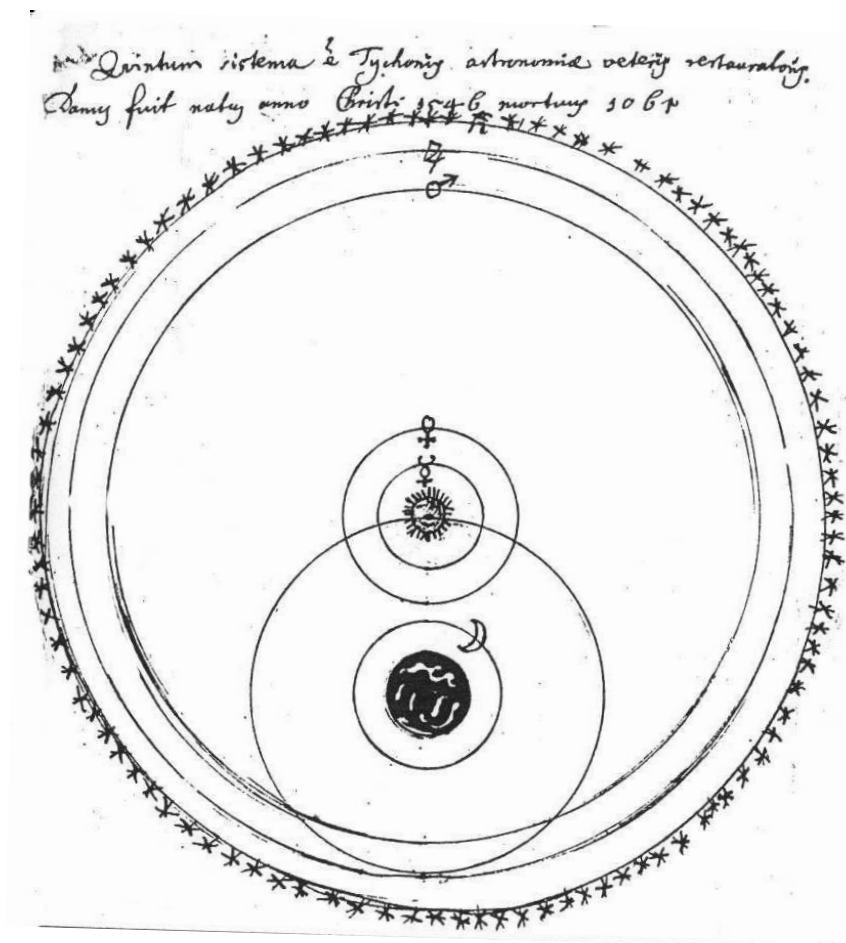 Quintum sistema è Tychonis astronomiæ veteris restauratoris.
Danus fuit natus anno Christi 1546 mortuus 1061
♄
♃
♂
♀
☿
☽